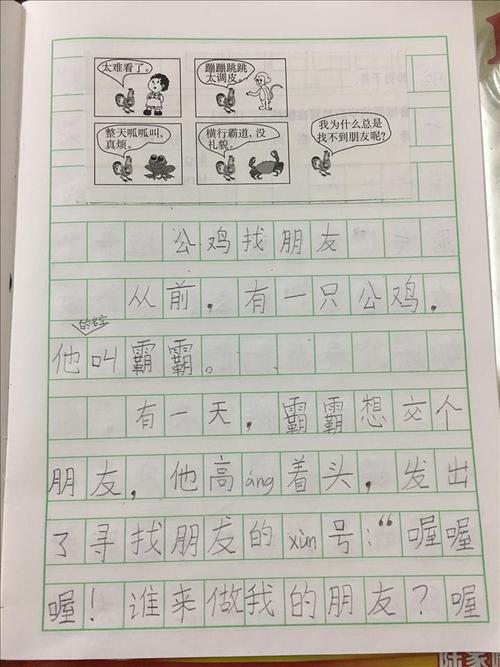 太难看了。
蹦蹦跳跳
太调皮。
整天呱呱叫,
真烦。
横行霸道,没
礼貌。
我为什么总是
找不到朋友呢?
公鸡找朋友
从前,有一只公鸡.
的名字
他叫霸霸。
有一天,霸霸想交个
朋友,他高áng着头,发出
了寻找朋友的xùn号:“喔喔
喔!谁来做我的朋友?喔